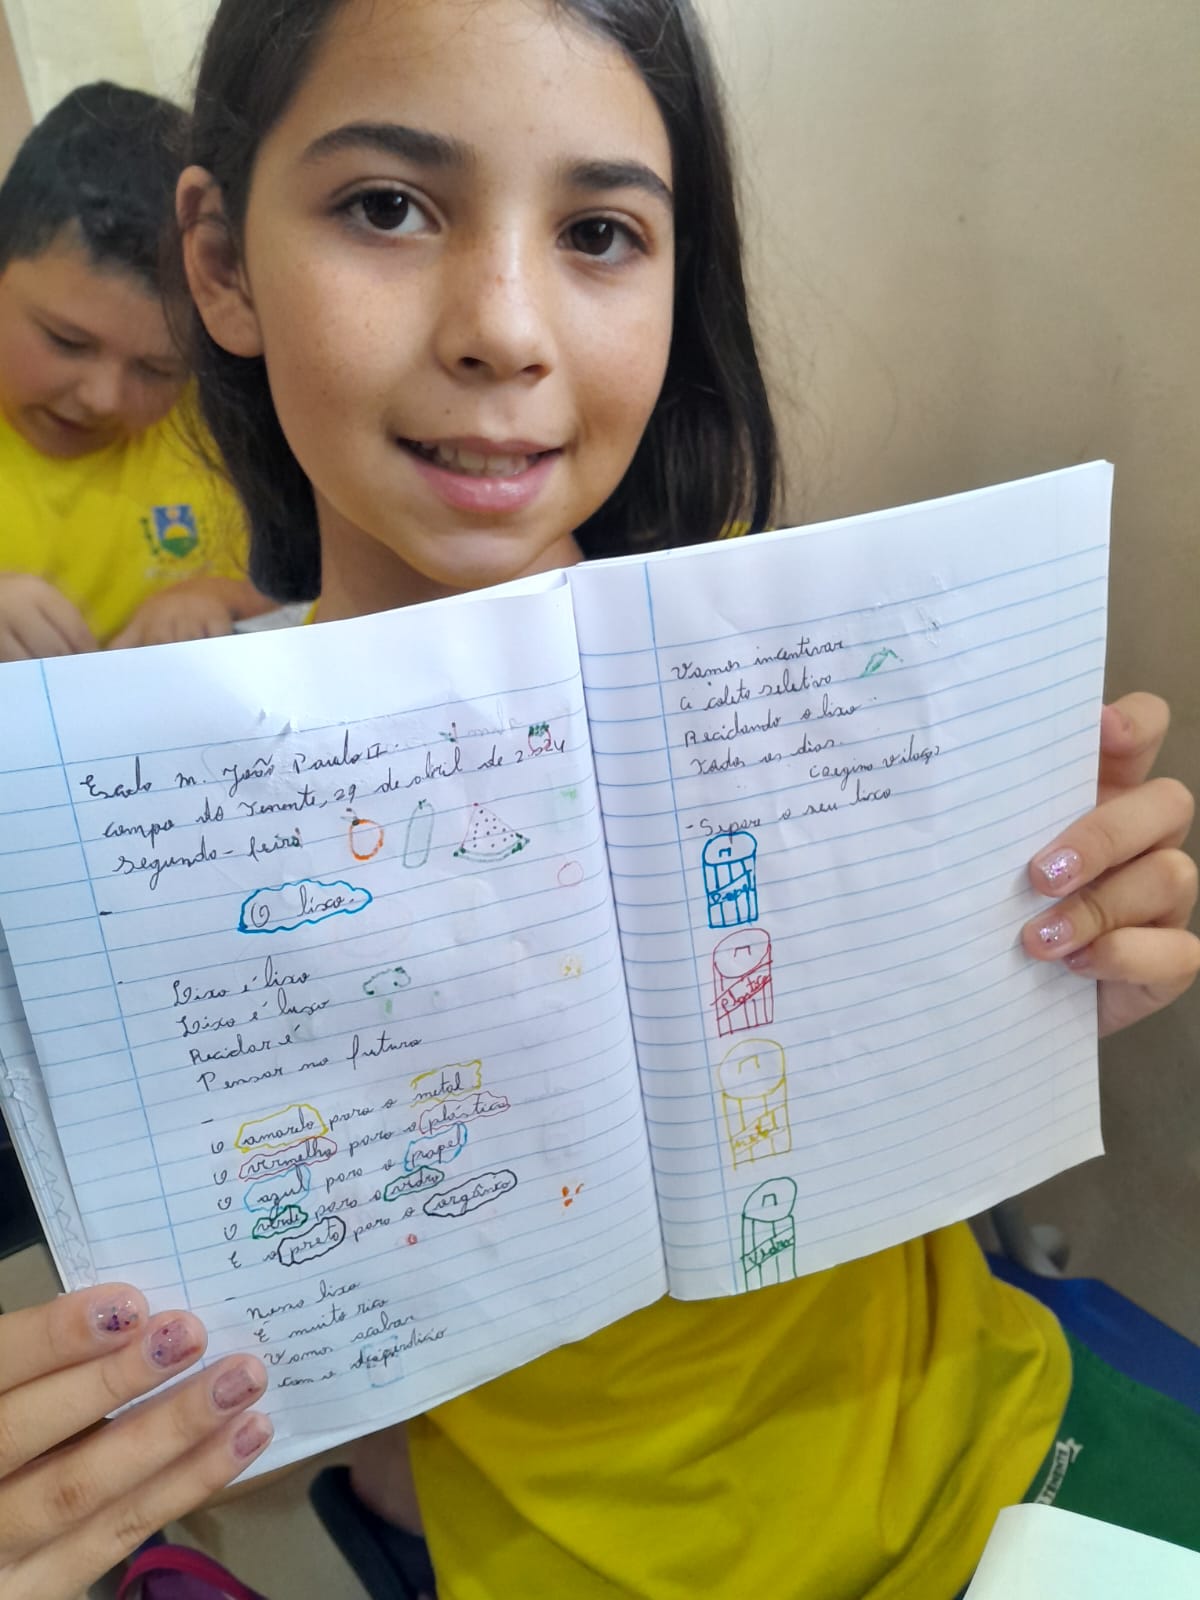 Escola M. João Paulo II.
Campo do Tenente, 29 de abril de 2024
segunda-feira
O lixo.
Lixo é lixo
Lixo é luxo
Reciclar é
Pensar no futuro
O amarelo para o metal
O vermelho para o plástico
O azul para o papel
O verde para o vidro
E o preto para o orgânico
Nosso lixo
É muito rico
Vamos acabar
com o desperdício
Vamos incentivar
A coleta seletiva
Reciclando o lixo
Todos os dias.
- Separe o seu lixo
Papel
plástico
metal
Vidro